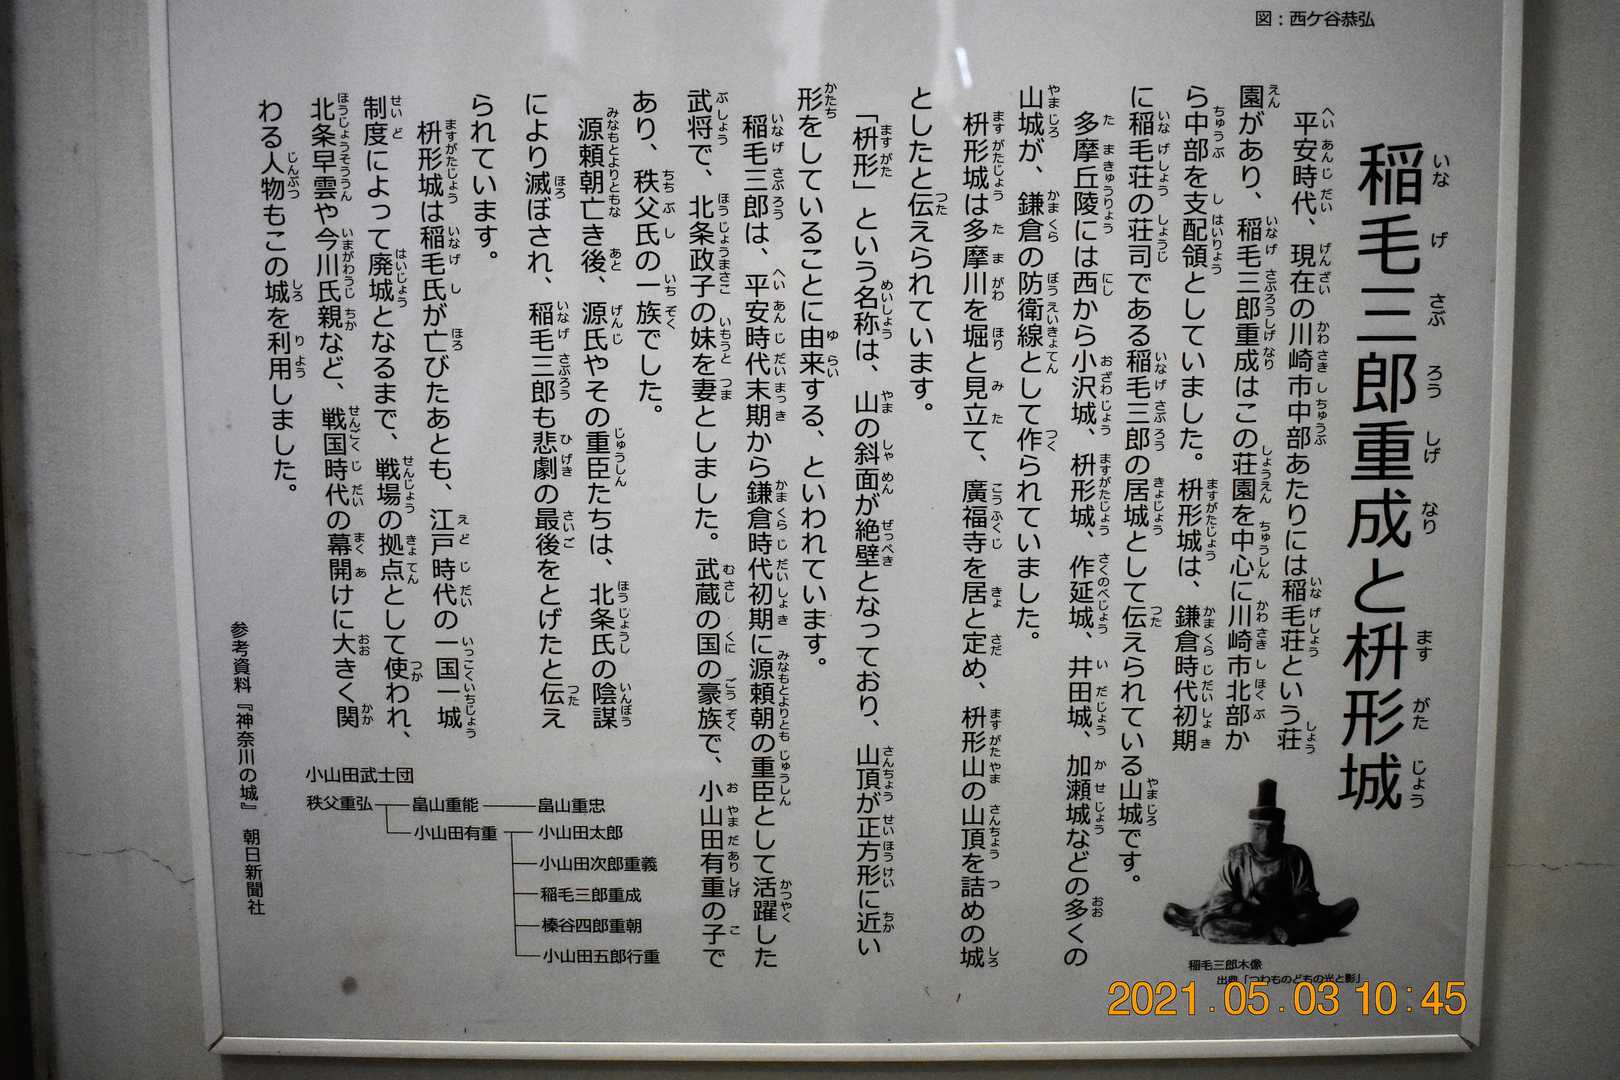 図：西ケ谷恭弘
稲毛三郎重成と枡形城
いな げ さぶ ろう しげ なり ます がた じょう
平安時代、現在の川崎市中部あたりには稲毛荘という荘
園があり、稲毛三郎重成はこの荘園を中心に川崎市北部か
ら中部を支配領としていました。枡形城は、鎌倉時代初期
に稲毛荘の荘司である稲毛三郎の居城として伝えられている山城です。
多摩丘陵には西から小沢城、枡形城、作延城、井田城、加瀬城などの多くの
山城が、鎌倉の防衛線として作られていました。
枡形城は多摩川を堀と見立て、廣福寺を居と定め、枡形山の山頂を詰めの城
としたと伝えられています。
「枡形」という名称は、山の斜面が絶壁となっており、山頂が正方形に近い
形をしていることに由来する、といわれています。
稲毛三郎は、平安時代末期から鎌倉時代初期に源頼朝の重臣として活躍した
武将で、北条政子の妹を妻としました。武蔵の国の豪族で、小山田有重の子で
あり、秩父氏の一族でした。
源頼朝亡き後、源氏やその重臣たちは、北条氏の陰謀
により滅ぼされ、稲毛三郎も悲劇の最後をとげたと伝え
られています。
枡形城は稲毛氏が亡びたあとも、江戸時代の一国一城
制度によって廃城となるまで、戦場の拠点として使われ、
北条早雲や今川氏親など、戦国時代の幕開けに大きく関
わる人物もこの城を利用しました。
参考資料『神奈川の城』 朝日新聞社
小山田武士団
秩父重弘 畠山重能 畠山重忠
小山田有重 小山田太郎
小山田次郎重義
稲毛三郎重成
榛谷四郎重朝
小山田五郎行重
稲毛三郎木像
出典「つわものどちの光と影」
2021.05.03 10:45